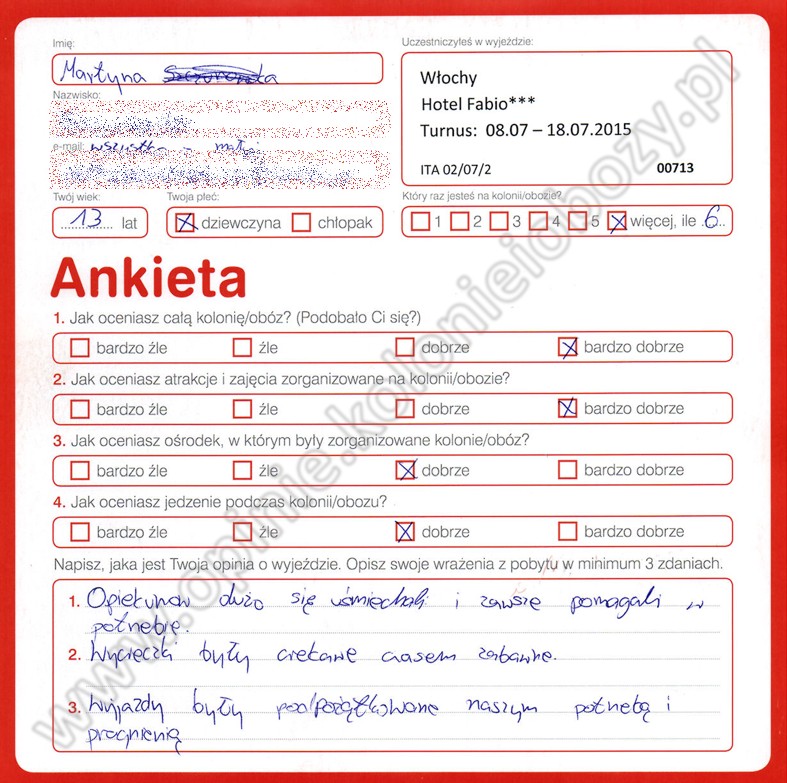 Imię:
Martyna
Nazwisko:
e-mail: wszystko - małe
Twój wiek:
13 lat
Twoja płeć:
dziewczyna chłopak
Uczestniczyłeś w wyjeździe:
Włochy
Hotel Fabio***
Turnus: 08.07 – 18.07.2015
ITA 02/07/2 00713
Który raz jesteś na kolonii/obozie?
1 2 3 4 5 więcej, ile 6
Ankieta
1. Jak oceniasz całą kolonię/obóz? (Podobało Ci się?)
bardzo źle źle dobrze bardzo dobrze
2. Jak oceniasz atrakcje i zajęcia zorganizowane na kolonii/obozie?
bardzo źle źle dobrze bardzo dobrze
3. Jak oceniasz ośrodek, w którym były zorganizowane kolonie/obóz?
bardzo źle źle dobrze bardzo dobrze
4. Jak oceniasz jedzenie podczas kolonii/obozu?
bardzo źle źle dobrze bardzo dobrze
Napisz, jaka jest Twoja opinia o wyjeździe. Opisz swoje wrażenia z pobytu w minimum 3 zdaniach.
1. Opiekunow dużo się uśmiechali i zawsze pomagali w
potrzebie.
2. Wycieczki były ciekawe czasem zabawne.
3. Wyjazdy były podpożątkowane naszym potrzebą i
pragnienią
www.opinie.kolonieiobozy.pl